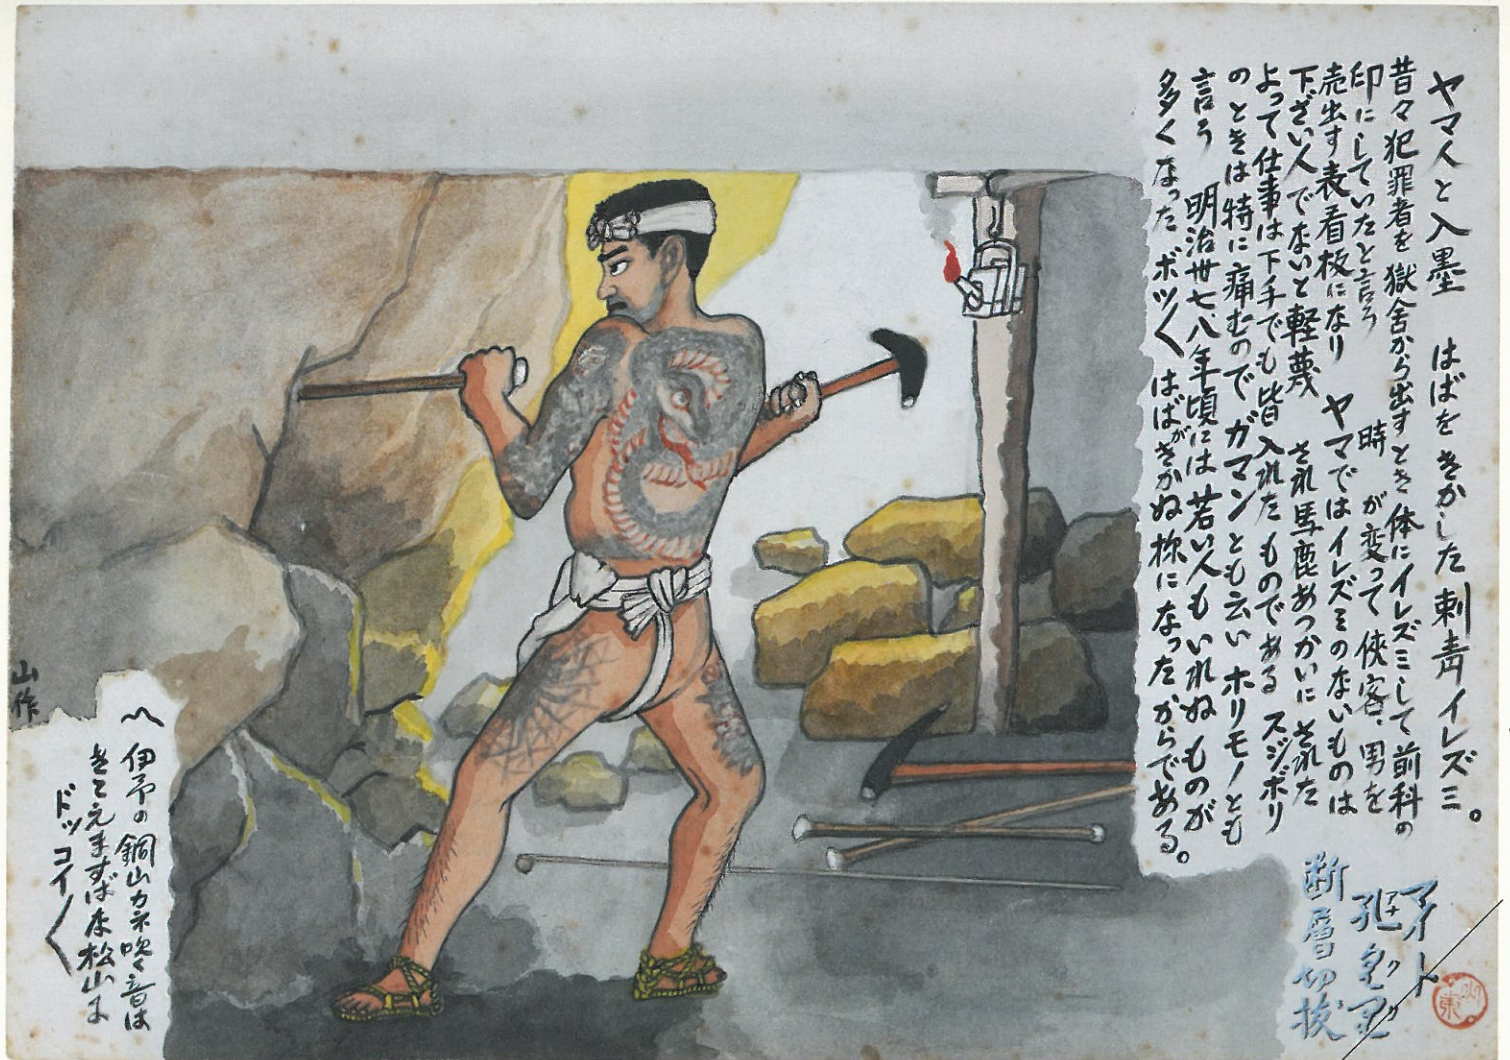 ヤマ人と入墨　はばをきかした刺青イレズミ。
昔々犯罪者を獄舎から出すとき体にイレズミして前科の
印にしていたと言う　時が変って侠客、男を
売出す表看板になり　ヤマではイレズミのないものは
下ざい人でないと軽蔑　され馬鹿あつかいにされた
よって仕事は下手でも皆入れたものである　スジボリ
のときは特に痛むのでガマンとも云い　ホリモノとも
言う　明治卅七八年頃には若い人もいれぬものが
多くなった　ボツ〱　はばがきかぬ様になったからである。
マイト
孔
断層切拔
山作
〽伊予の銅山カネ吹く音は
きこえますば松山
ドッコイ〱